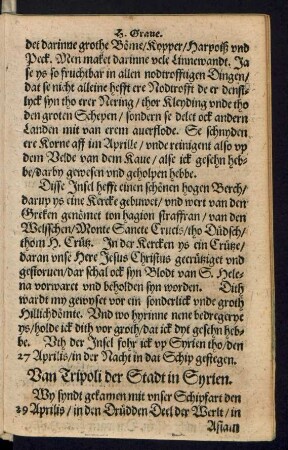 H. Graue.
det darinne grothe Böme/Kypper/Harpoiß vnd
Peck. Men maket darinne vele Linnewandt. Ja
se ys so fruchtbar in allen nodtroffigen Dingen/
dat se nicht alleine hefft ere Nodtrofft de er denst-
lyck syn tho erer Nering/ thor Kleyding vnde tho
den groten Schepen/ sondern se delet ock andern
Landen mit van erem auerflode. Se schnyden
ere Korne aff im Aprille/ vnde reinigent also vp
dem Velde van dem Kaue/ alse ick gesehn heb-
be/darby gewesen vnd geholpen hebbe.
Disse Insel hefft einen schönen hogen Berch/
daruy ys eine Kercke gebuwet/ vnd wert van den
Greken genömet ton hagion straffran/ van den
Welsschen/Monte Sancte Crucis/tho Düdsch/
thom H. Crütz. In der Kercken ys ein Crütze/
daran vnse Here Jesus Christus gecrütziget vnd
gestoruen/dar schal ock syn Blodt van S. Hele-
na vorwaret vnd beholden syn worden. Dith
wardt my gewyset vor ein sonderlick vnde groth
Hillichdömte. Vnd wo hyrinne nene bedregerye
ys/holde ick dith vor groth/dat ick dyt gesehn heb-
be. Vth der Insel fohr ick vp Syrien tho/den
27 Aprilis/in der Nacht in dat Schip gestegen.
Van Tripoli der Stadt in Syrien.
Wy syndt gekamen mit vnser Schipfart den
29 Aprilis/ in den Drüdden Deel der Werlt/ in
Asiam